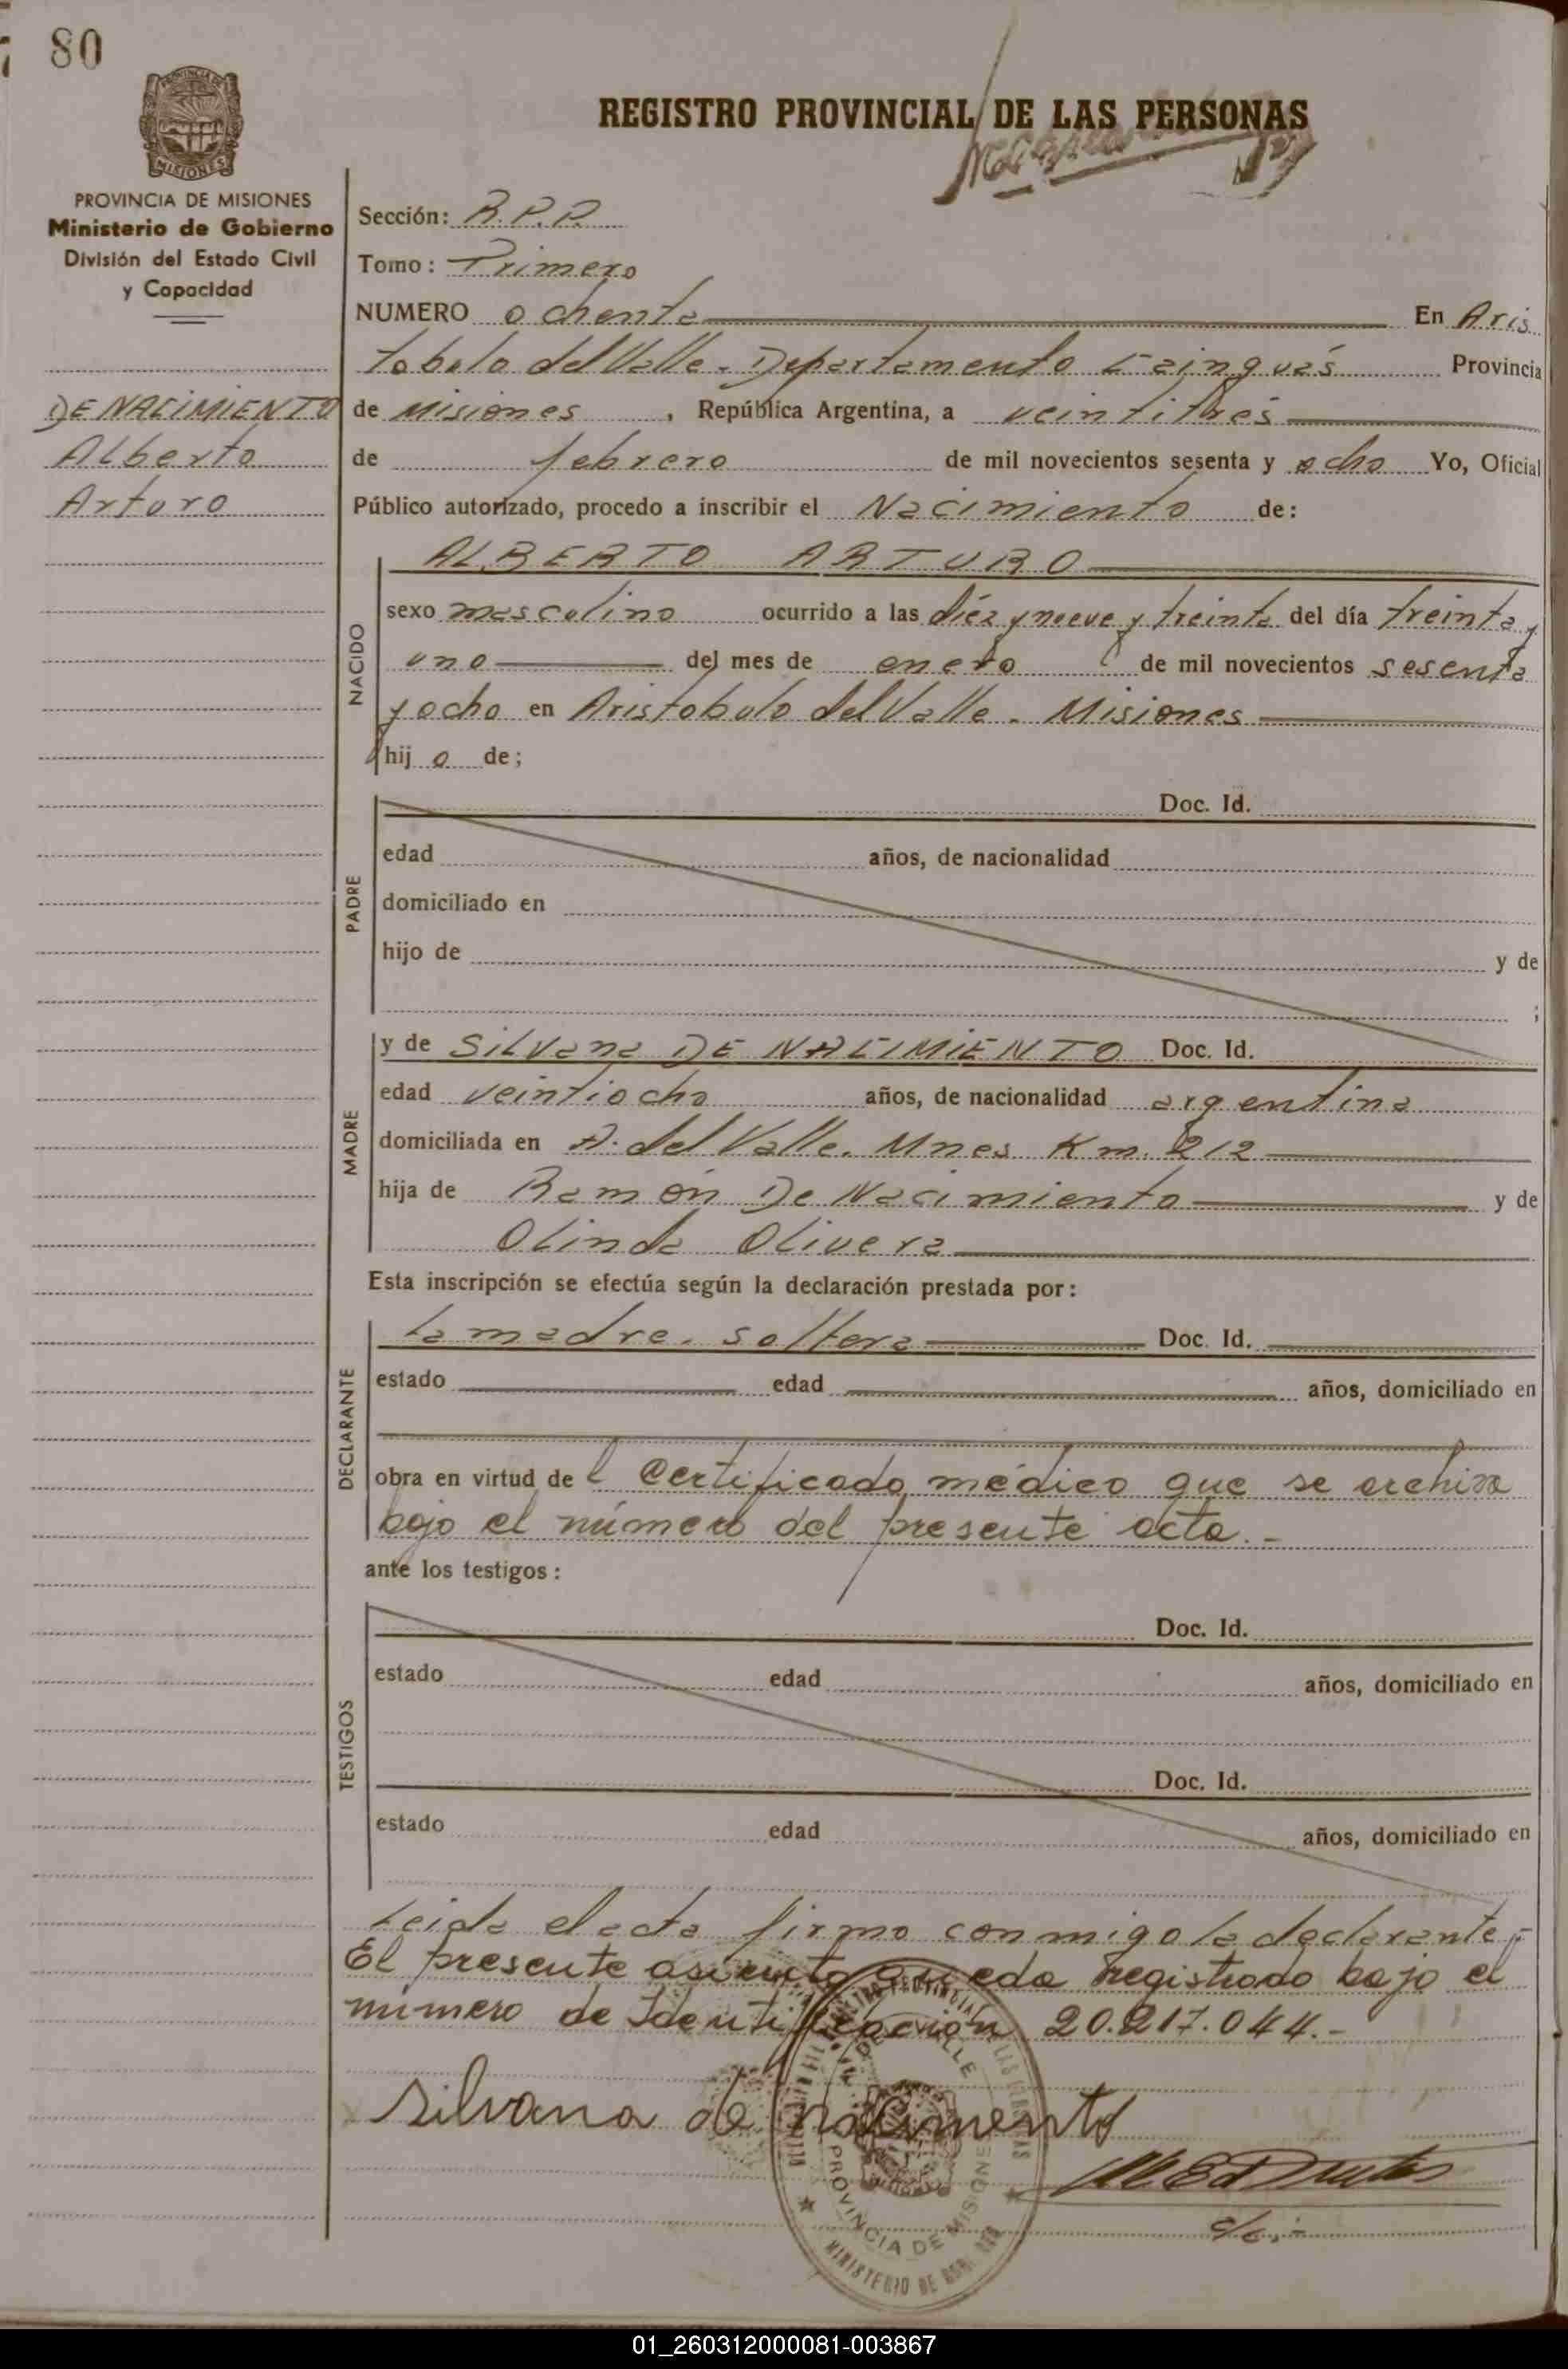 80
PROVINCIA DE MISIONES
Ministerio de Gobierno
División del Estado Civil
y Capacidad
DE NACIMIENTO
Alberto
Arturo
REGISTRO PROVINCIAL DE LAS PERSONAS
Sección: R.P.P.
Tomo: Primero
NUMERO ochenta En Aris
tobulo del Valle. Departamento Cainguás Provincia
de Misiones, República Argentina, a veintitrés
de febrero de mil novecientos sesenta y ocho Yo, Oficial
Público autorizado, procedo a inscribir el Nacimiento de:
NACIDO
ALBERTO ARTURO
sexo masculino ocurrido a las diéz y nueve y treinta del día treinta y
uno del mes de enero de mil novecientos sesenta
y ocho en Aristobulo del Valle. Misiones
hijo de;
PADRE
Doc. Id.
edad años, de nacionalidad
domiciliado en
hijo de y de
;
MADRE
y de SILVana DE NACIMIENTO Doc. Id.
edad veintiocho años, de nacionalidad argentina
domiciliada en A. del Valle. Mnes Km. 212
hija de Ramón De Nacimiento y de
Olinda Olivera
Esta inscripción se efectúa según la declaración prestada por:
DECLARANTE
La madre. soltera Doc. Id.
estado edad años, domiciliado en
obra en virtud del Certificado médico que se archiva
bajo el número del presente acta.-
ante los testigos:
TESTIGOS
Doc. Id.
estado edad años, domiciliado en
Doc. Id.
estado edad años, domiciliado en
Leida el acta firmo conmigo la declarante.-
El presente asiento queda registrado bajo el
número de Identificación 20.217.044.-
Silvana de nacimento
PROVINCIA DE MISIONES
MINISTERIO DE
01_260312000081-003867